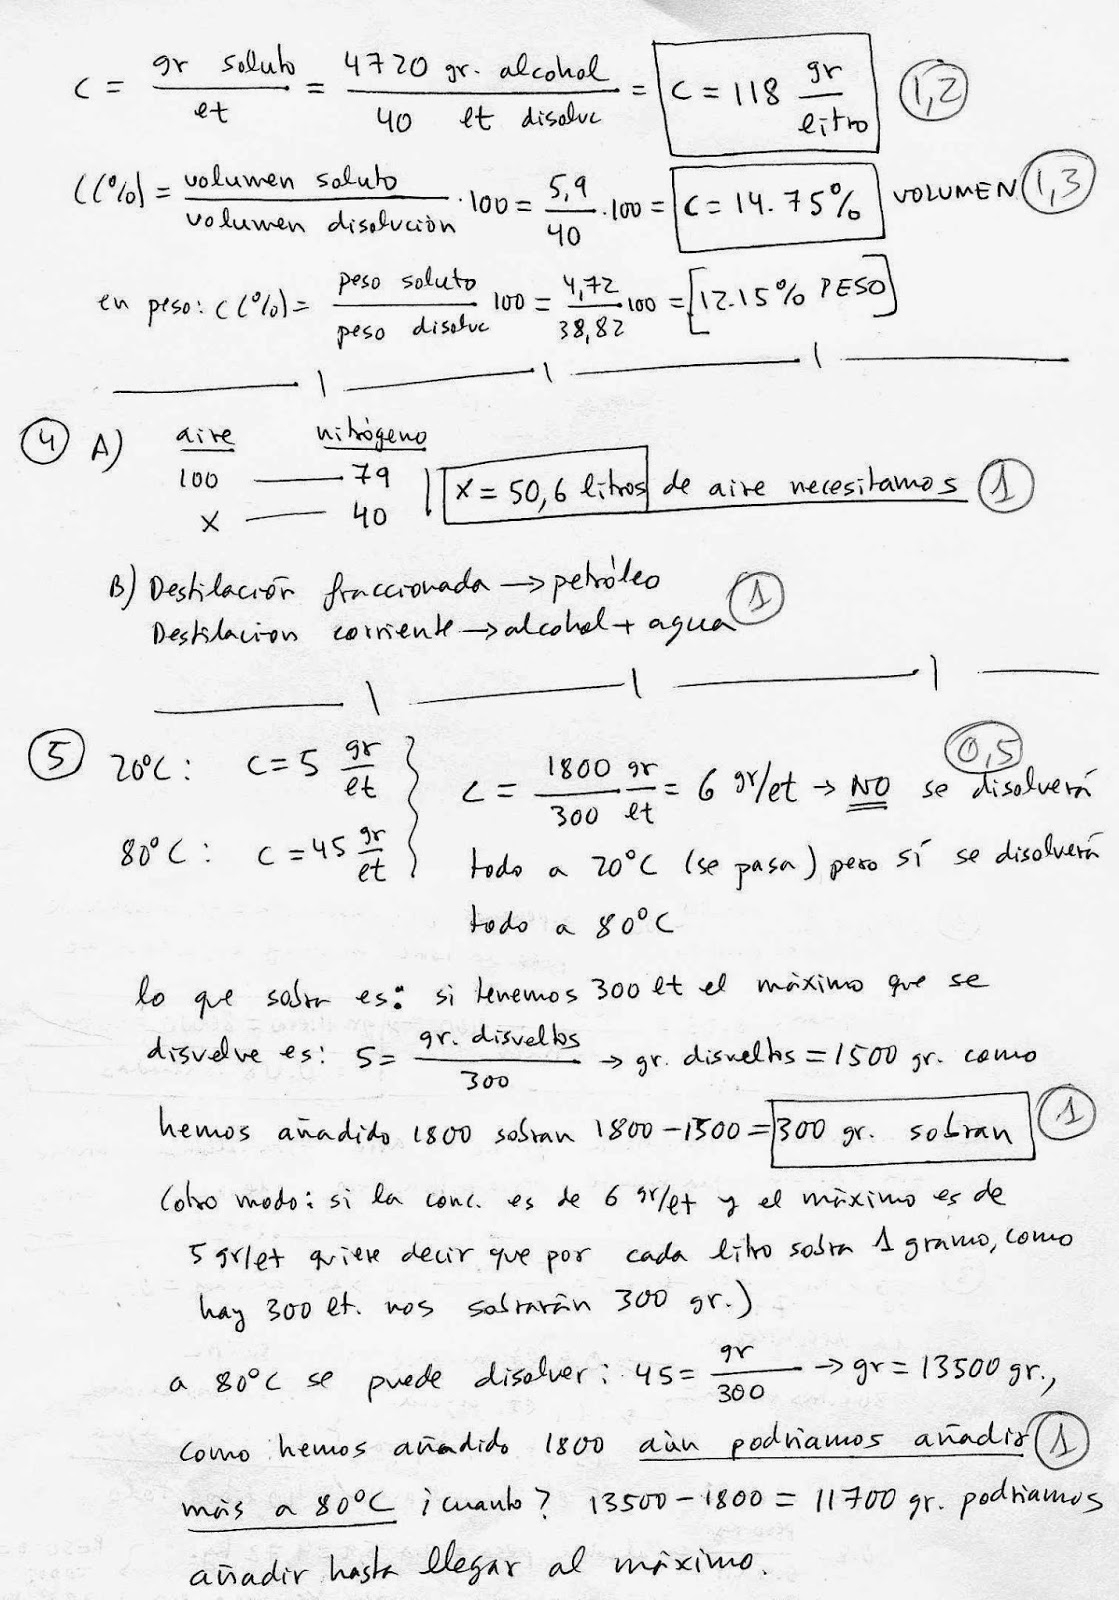 C = gr soluto / et = 4720 gr. alcohol / 40 et disolvc = C = 118 gr / litro (1,2)
C(%) = volumen soluto / volumen disolución · 100 = 5,9 / 40 · 100 = C = 14.75% VOLUMEN (1,3)
en peso: C(%) = peso soluto / peso disolvc 100 = 4,72 / 38,82 100 = [12.15% PESO]
4 A) aire nitrógeno
100 — 79
x — 40
x = 50,6 litros de aire necesitamos (1)
B) Destilación fraccionada → petróleo
Destilacion corriente → alcohol + agua (1)
5 20°C: C = 5 gr / et
80°C: C = 45 gr / et
C = 1800 / 300 gr / et = 6 gr/et → NO se disolverá (0,5)
todo a 20°C (se pasa) pero sí se disolverá
todo a 80°C
lo que sobra es: si tenemos 300 et el màximo que se
disuelve es: 5 = gr. disueltos / 300 → gr. disueltos = 1500 gr. como
hemos añadido 1800 sobran 1800 - 1500 = 300 gr. sobran (1)
(otro modo: si la conc. es de 6 gr/et y el màximo es de
5 gr/et quiere decir que por cada litro sobra 1 gramo, como
hay 300 et. nos sobrarán 300 gr.)
a 80°C se puede disolver: 45 = gr / 300 → gr = 13500 gr.,
como hemos añadido 1800 aùn podriamos añadir (1)
más a 80°C ¡cuanto? 13500 - 1800 = 11700 gr. podriamos
añadir hasta llegar al màximo.